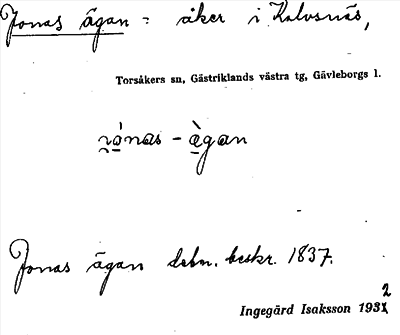 Jonas ägan = åker i Kalvsnäs,
Torsåkers sn, Gästriklands västra tg, Gävleborgs l.
Jonas ägan debn. beskr. 1837.
Ingegärd Isaksson 1932